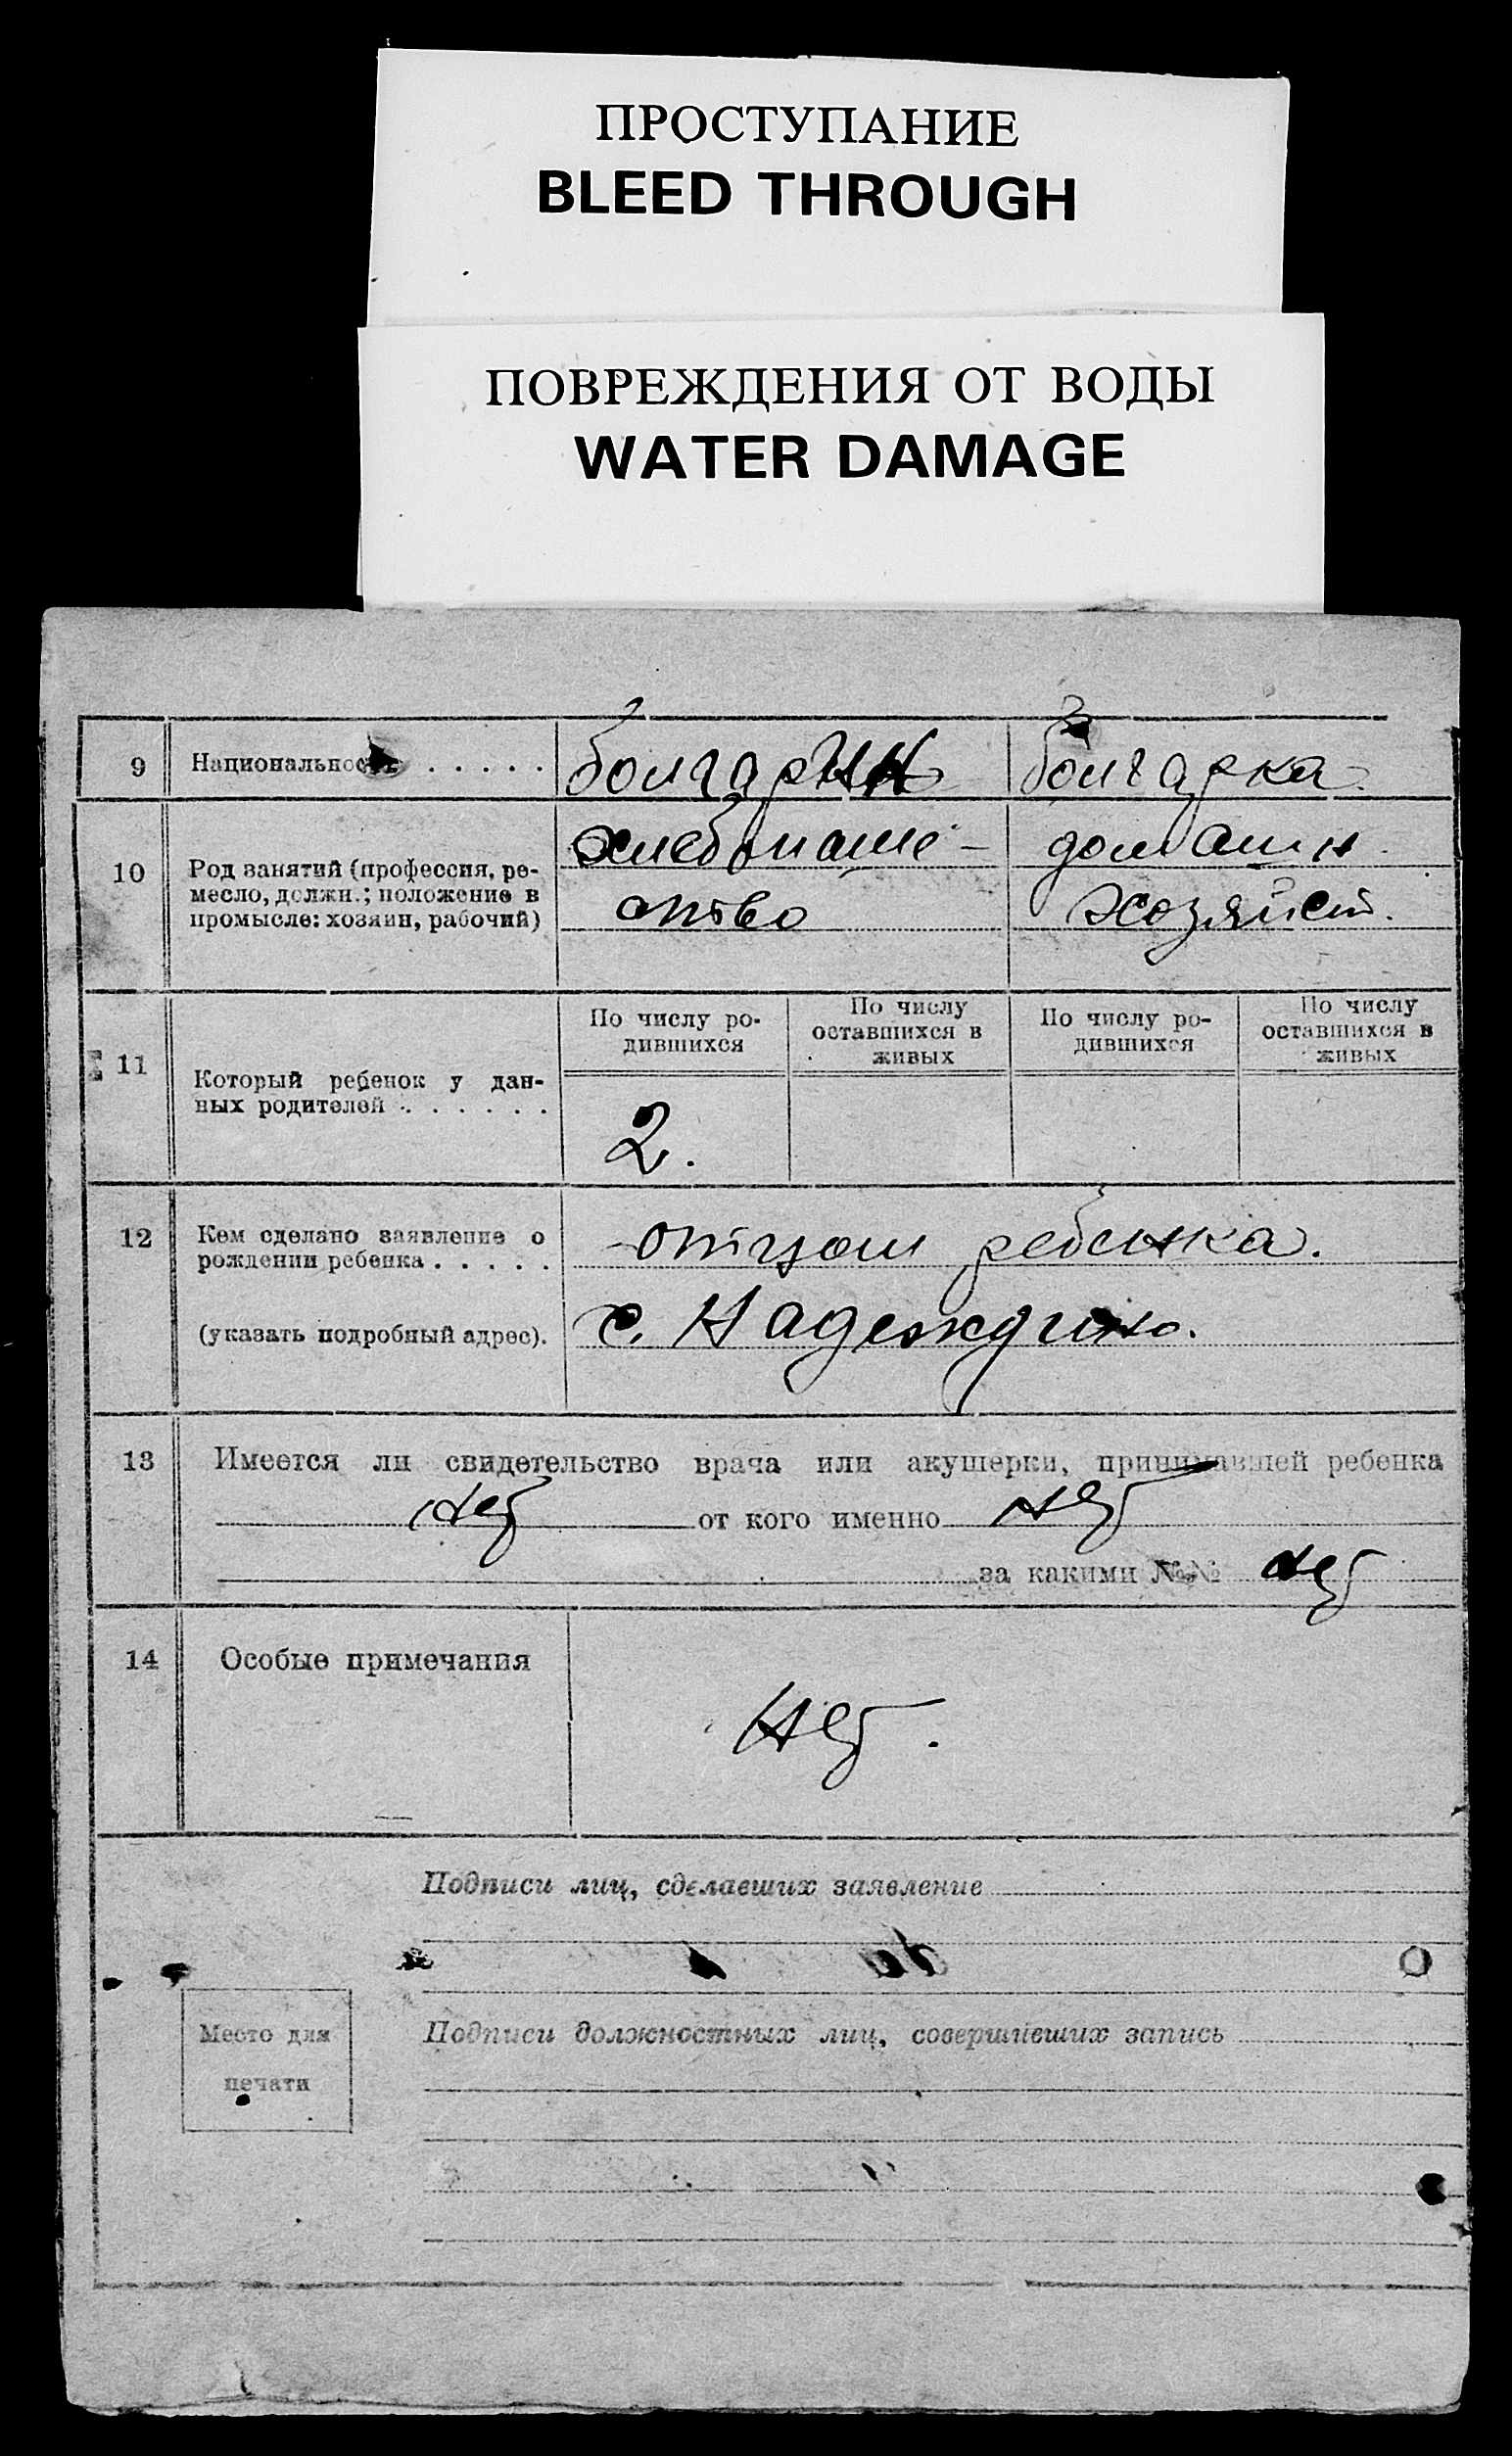 ПРОСТУПАНИЕ
BLEED THROUGH
ПОВРЕЖДЕНИЯ ОТ ВОДЫ
WATER DAMAGE
9 Национальность . . . . . болгарин болгарка
10 Род занятий (профессия, ре-
месло, должн.; положение в
промысле: хозяин, рабочий)
хлебопаше-
ство
домашн.
хозяйст.
11 Который ребенок у дан-
ных родителей . . . . . .
По числу ро-
дившихся
По числу
оставшихся в
живых
По числу ро-
дившихся
По числу
оставшихся в
живых
2.
12 Кем сделано заявление о
рождении ребенка . . . . .
отцом ребенка.
(указать подробный адрес).
с. Надеждино.
13 Имеется ли свидетельство врача или акушерки, принимавшей ребенка
нет от кого именно нет
за какими №№ нет
14 Особые примечания
Нет.
Подписи лиц, сделавших заявление
Место для
печати
Подписи должностных лиц, совершивших запись